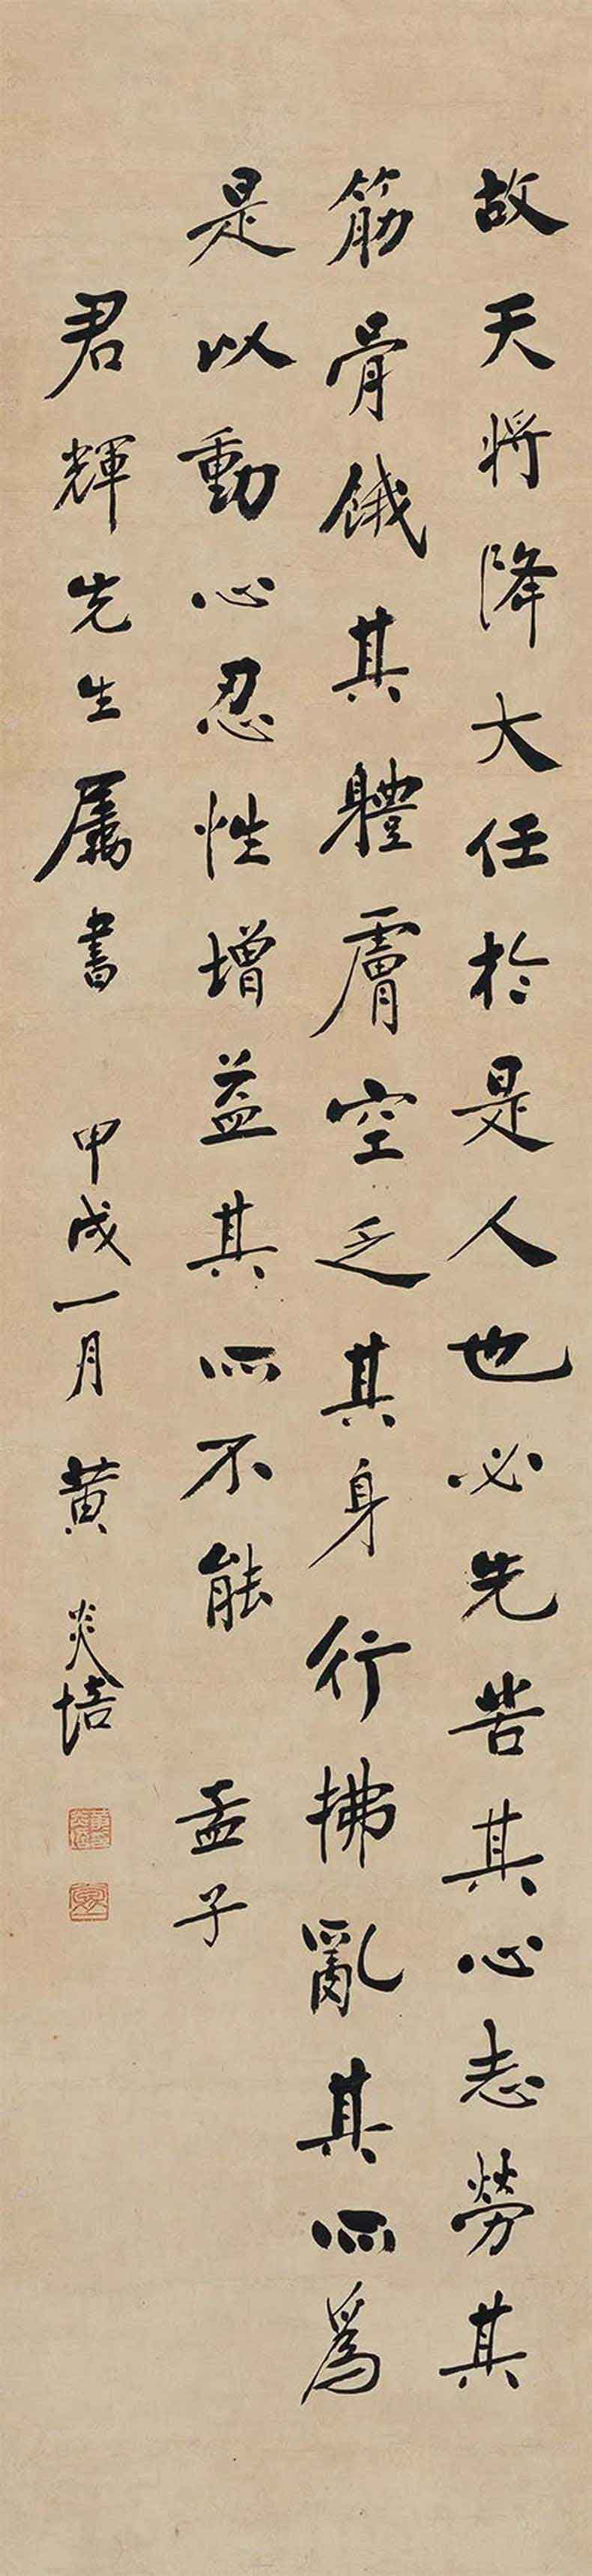 故天将降大任於是人也必先苦其心志勞其
筋骨餓其體膚空乏其身行拂亂其所為
是以動心忍性增益其所不能 孟子
君輝先生屬書 甲戌一月 黄炎培